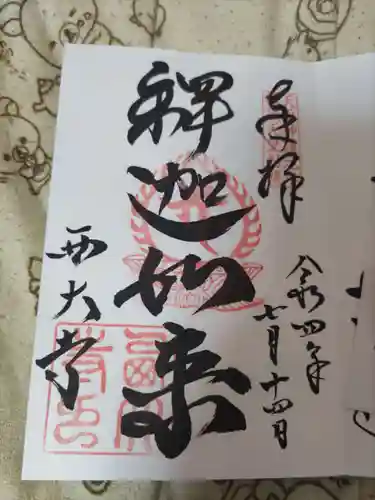 奉拝
令和四年
七月十四日
釋迦如来
西大寺